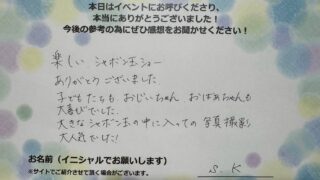 本日はイベントにお呼びくださり、
本当にありがとうございました！
今後の参考の為にぜひ感想をお聞かせください！
楽しい シャボン玉ショー
ありがとうございました
子どもたちも、おじいちゃん おばあちゃんも
大喜びでした。
大きなシャボン玉の中に入っての写真撮影
大人気でした！
お名前（イニシャルでお願いします）
S. K
※サイトでご紹介させて頂く場合がございます。